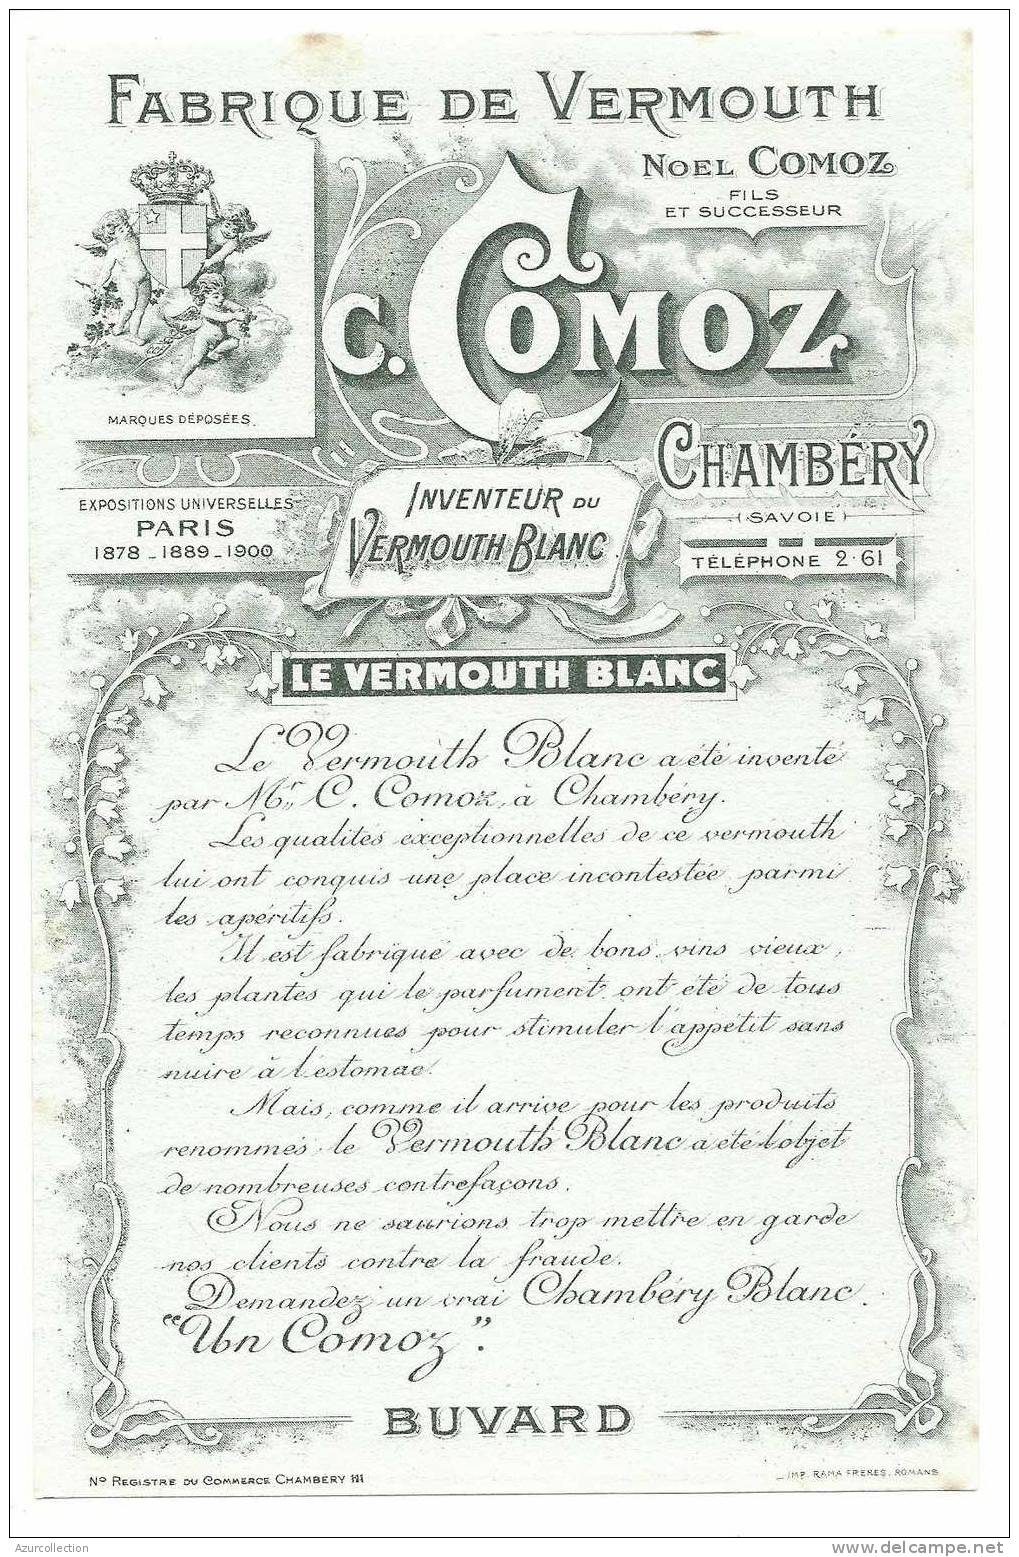 FABRIQUE DE VERMOUTH
NOEL COMOZ
FILS
ET SUCCESSEUR
C. COMOZ
MARQUES DÉPOSÉES.
CHAMBÉRY
(SAVOIE)
TÉLÉPHONE 2.61
EXPOSITIONS UNIVERSELLES
PARIS
1878-1889-1900
INVENTEUR DU
VERMOUTH BLANC
LE VERMOUTH BLANC
Le Vermouth Blanc a été inventé
par Mr. C. Comoz, à Chambéry.
Les qualités exceptionnelles de ce vermouth
lui ont conquis une place incontestée parmi
les apéritifs.
Il est fabriqué avec de bons vins vieux,
les plantes qui le parfument ont été de tous
temps reconnues pour stimuler l'appétit sans
nuire à l'estomac.
Mais, comme il arrive pour les produits
renommés, le Vermouth Blanc a été l'objet
de nombreuses contrefaçons.
Nous ne saurions trop mettre en garde
nos clients contre la fraude.
Demandez un vrai Chambéry Blanc.
"Un Comoz".
BUVARD
No REGISTRE DU COMMERCE CHAMBERY
IMP. RAMA FRERES. ROMANS
Azurcollection
delcampe.net